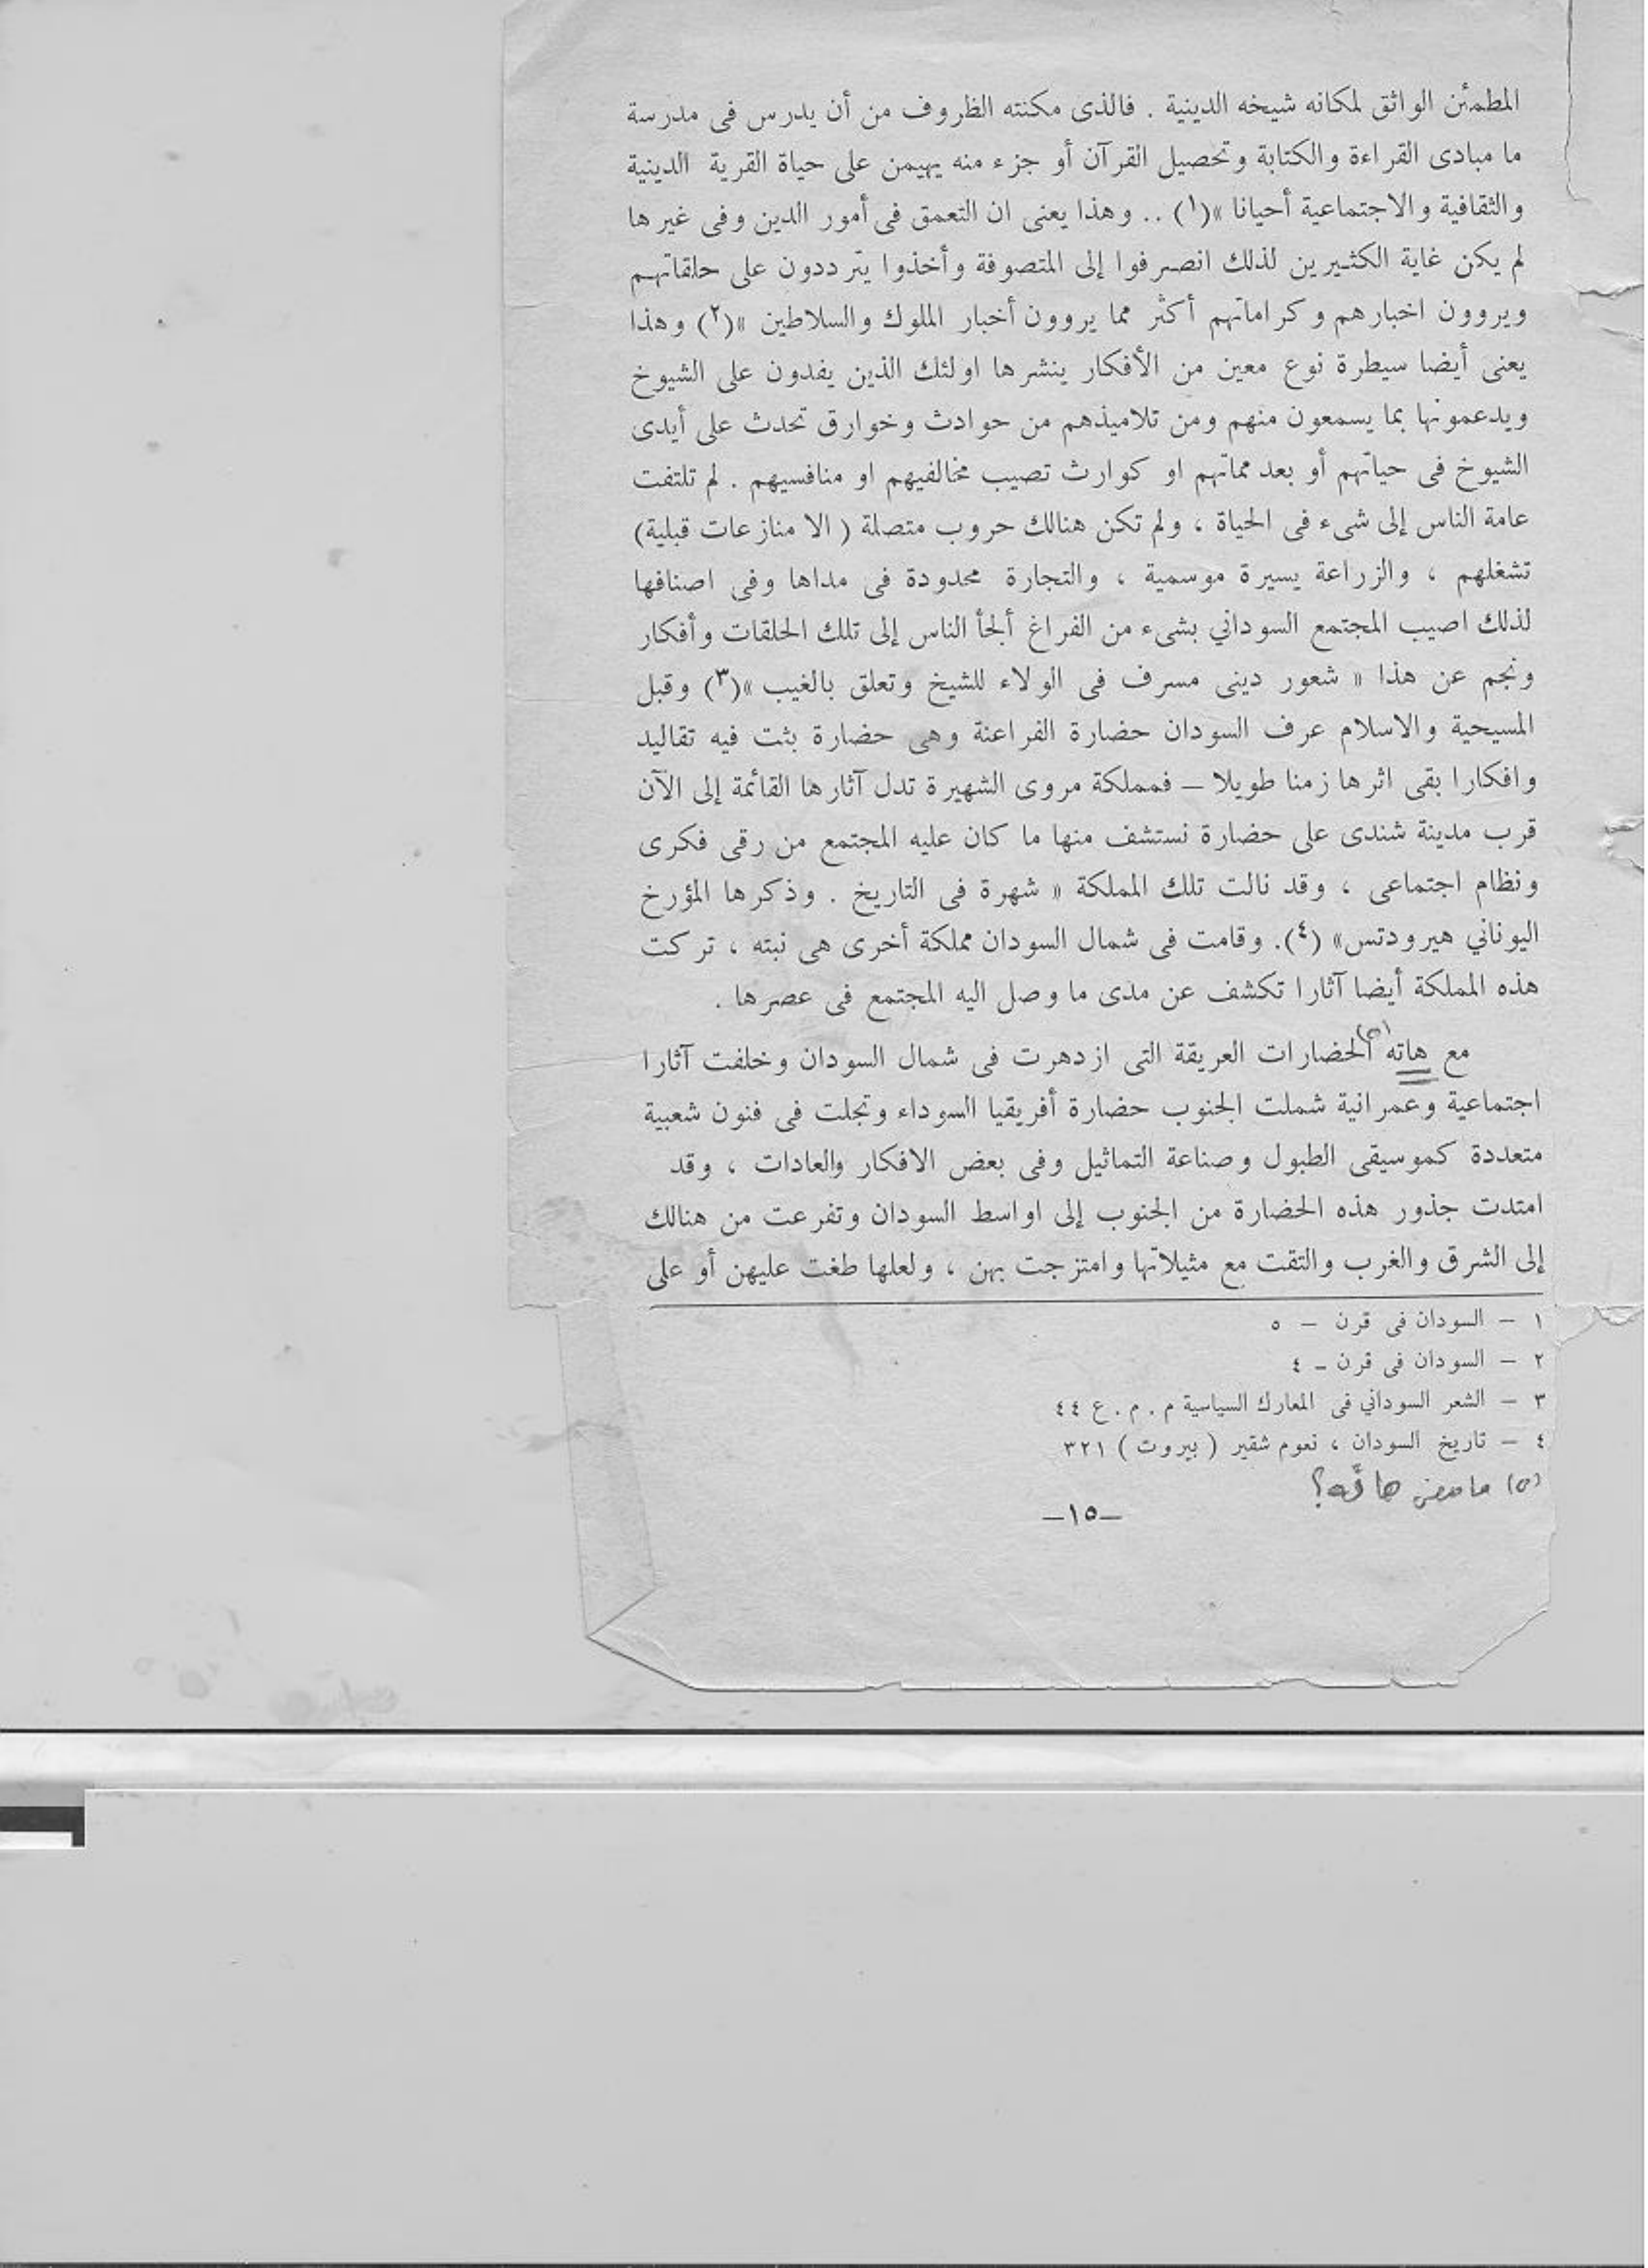 المطمئن الواثق لمكانه شيخه الدينية . فالذى مكنته الظروف من أن يدرس فى مدرسة
ما مبادى القراءة والكتابة وتحصيل القرآن أو جزء منه يهيمن على حياة القرية الدينية
والثقافية والاجتماعية أحيانا »(١) .. وهذا يعنى ان التعمق فى أمور الدين وفى غيرها
لم يكن غاية الكثيرين لذلك انصرفوا إلى المتصوفة وأخذوا يترددون على حلقاتهم
ويروون اخبارهم وكراماتهم أكثر مما يروون أخبار الملوك والسلاطين »(٢) وهذا
يعنى أيضا سيطرة نوع معين من الأفكار ينشرها اولئك الذين يفدون على الشيوخ
ويدعمونها بما يسمعون منهم ومن تلاميذهم من حوادث وخوارق تحدث على أيدى
الشيوخ فى حياتهم أو بعد مماتهم او كوارث تصيب مخالفيهم او منافسيهم . لم تلتفت
عامة الناس إلى شىء فى الحياة ، ولم تكن هنالك حروب متصلة ( الا منازعات قبلية)
تشغلهم ، والزراعة يسيرة موسمية ، والتجارة محدودة فى مداها وفى اصنافها
لذلك اصيب المجتمع السوداني بشىء من الفراغ ألجأ الناس إلى تلك الحلقات وأفكار
ونجم عن هذا « شعور دينى مسرف فى الولاء للشيخ وتعلق بالغيب »(٣) وقبل
المسيحية والاسلام عرف السودان حضارة الفراعنة وهى حضارة بثت فيه تقاليد
وافكارا بقى اثرها زمنا طويلا – فمملكة مروى الشهيرة تدل آثارها القائمة إلى الآن
قرب مدينة شندى على حضارة نستشف منها ما كان عليه المجتمع من رقى فكرى
ونظام اجتماعى ، وقد نالت تلك المملكة « شهرة فى التاريخ . وذكرها المؤرخ
اليوناني هيرودتس» (٤). وقامت فى شمال السودان مملكة أخرى هى نبته ، تركت
هذه المملكة أيضا آثارا تكشف عن مدى ما وصل اليه المجتمع فى عصرها .
مع هاته (٥) الحضارات العريقة التى ازدهرت فى شمال السودان وخلفت آثارا
اجتماعية وعمرانية شملت الجنوب حضارة أفريقيا السوداء وتجلت فى فنون شعبية
متعددة كموسيقى الطبول وصناعة التماثيل وفى بعض الافكار والعادات ، وقد
امتدت جذور هذه الحضارة من الجنوب إلى اواسط السودان وتفرعت من هنالك
إلى الشرق والغرب والتقت مع مثيلاتها وامتزجت بهن ، ولعلها طغت عليهن أو على
١ – السودان فى قرن – ٥
٢ – السودان فى قرن – ٤
٣ – الشعر السوداني فى المعارك السياسية م . م . ع ٤٤
٤ – تاريخ السودان ، نعوم شقير ( بيروت ) ٣٢١
(٥) ما معنى هاته ؟
–١٥–